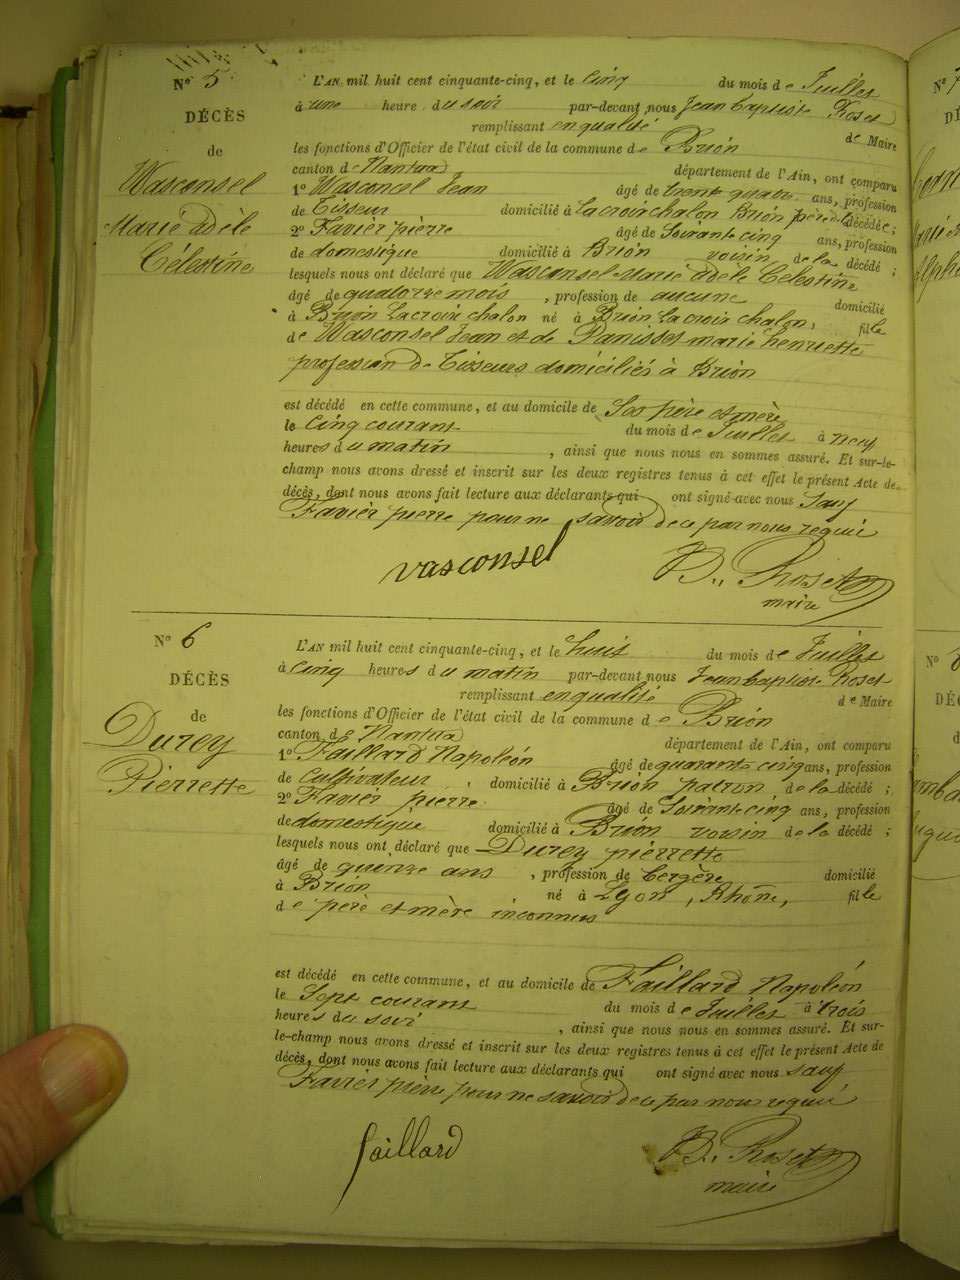 N° 5
DÉCÈS
de
Wasconsel
Marie adèle
Célestine
L'AN mil huit cent cinquante-cinq, et le Cinq du mois de Juillet
à une heure du soir par-devant nous Jean baptiste Roset
remplissant en qualité de Maire
les fonctions d'Officier de l'état civil de la commune de Brion
canton de Nantua département de l'Ain, ont comparu
1° Wasconcel Jean âgé de trent quatre ans, profession
de Tisseur domicilié à Lacroix chalon Brion père de la décédée ;
2° Favier pierre âgé de Soixante cinq ans, profession
de domestique domicilié à Brion voisin de la décédé ;
lesquels nous ont déclaré que Wasconsel Marie adele Célestine
âgé de quatorze mois , profession de aucune domicilié
à Brion Lacroix chalon né à Brion Lacroix chalon, fille
de Wasconsel Jean et de Panisset marie henriette
profession de Tisseurs domiciliés à Brion
est décédé en cette commune, et au domicile de Ses père et mère
le Cinq courant du mois de Juillet à neuf
heures du matin , ainsi que nous nous en sommes assuré. Et sur-le-
champ nous avons dressé et inscrit sur les deux registres tenus à cet effet le présent Acte de
décès, dont nous avons fait lecture aux déclarants qui ont signé avec nous Sauf
Favier pierre pour ne savoir de ce par nous requis
vasconsel
B. Roset
maire
N° 6
DÉCÈS
de
Durey
Pierrette
L'AN mil huit cent cinquante-cinq, et le huit du mois de Juillet
à Cinq heures du matin par-devant nous Jean baptiste Roset
remplissant en qualité de Maire
les fonctions d'Officier de l'état civil de la commune de Brion
canton de Nantua département de l'Ain, ont comparu
1° Faillard Napoléon âgé de quarante cinq ans, profession
de Cultivateur , domicilié à Brion patron de la décédé ;
2° Favier pierre âgé de Soixante cinq ans, profession
de domestique domicilié à Brion voisin de la décédé ;
lesquels nous ont déclaré que Durey pierrette
âgé de quinze ans , profession de bergère domicilié
à Brion né à Lyon, Rhône, fille
de père et mère inconnus
est décédé en cette commune, et au domicile de Faillard Napoléon
le Sept courant du mois de Juillet à trois
heures du soir , ainsi que nous nous en sommes assuré. Et sur-
le-champ nous avons dressé et inscrit sur les deux registres tenus à cet effet le présent Acte de
décès, dont nous avons fait lecture aux déclarants qui ont signé avec nous sauf
Favier pierre pour ne savoir de ce par nous requis
faillard
B. Roset
maire